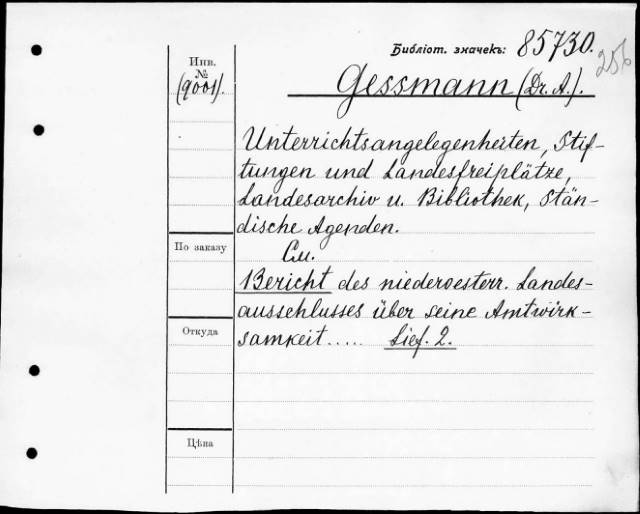 Библіот. значекъ: 85730.
256
Инв.
№
(9001).
Gessmann (Dr. A.).
Unterrichtsangelegenheiten, Stif-
tungen und Landesfreiplätze,
Landesarchiv u. Bibliothek, Stän-
dische Agenden.
По заказу
См.
Bericht des niederoesterr. Landes-
ausschlusses über seine Amtwirk-
Откуда
samkeit..... Lief. 2.
Цѣна